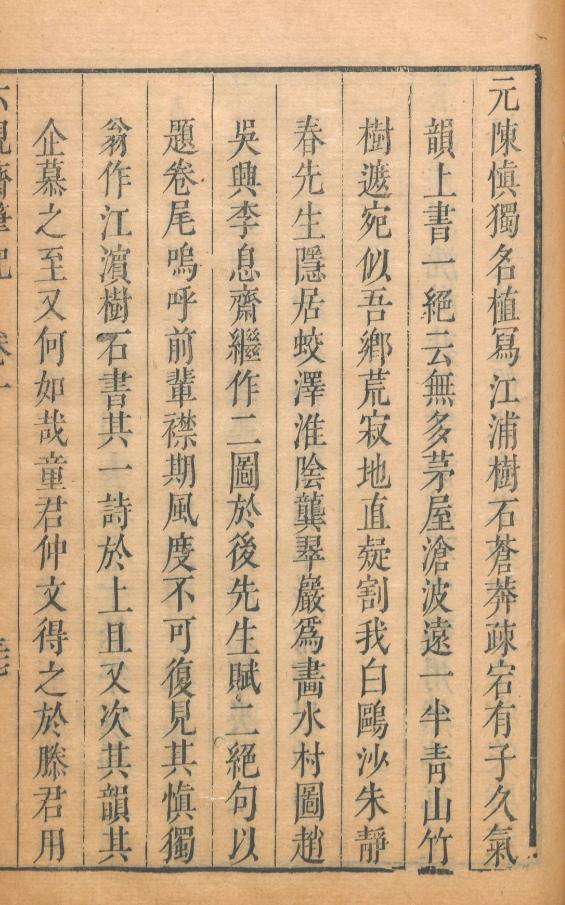 元陳慎獨名植冩江浦樹石蒼莽疎宕有子久氣
韻上書一絕云無多茅屋滄波遠一半青山竹
樹遮宛似吾鄉荒寂地直疑割我白鷗沙朱靜
春先生隱居蛟澤淮陰龔翠巖爲畵水村圖趙
吳興李息齋繼作二圖於後先生賦二絕句以
題卷尾嗚呼前輩襟期風度不可復見其慎獨
翁作江濵樹石書其一詩於上且又次其韻其
企慕之至又何如哉童君仲文得之於滕君用